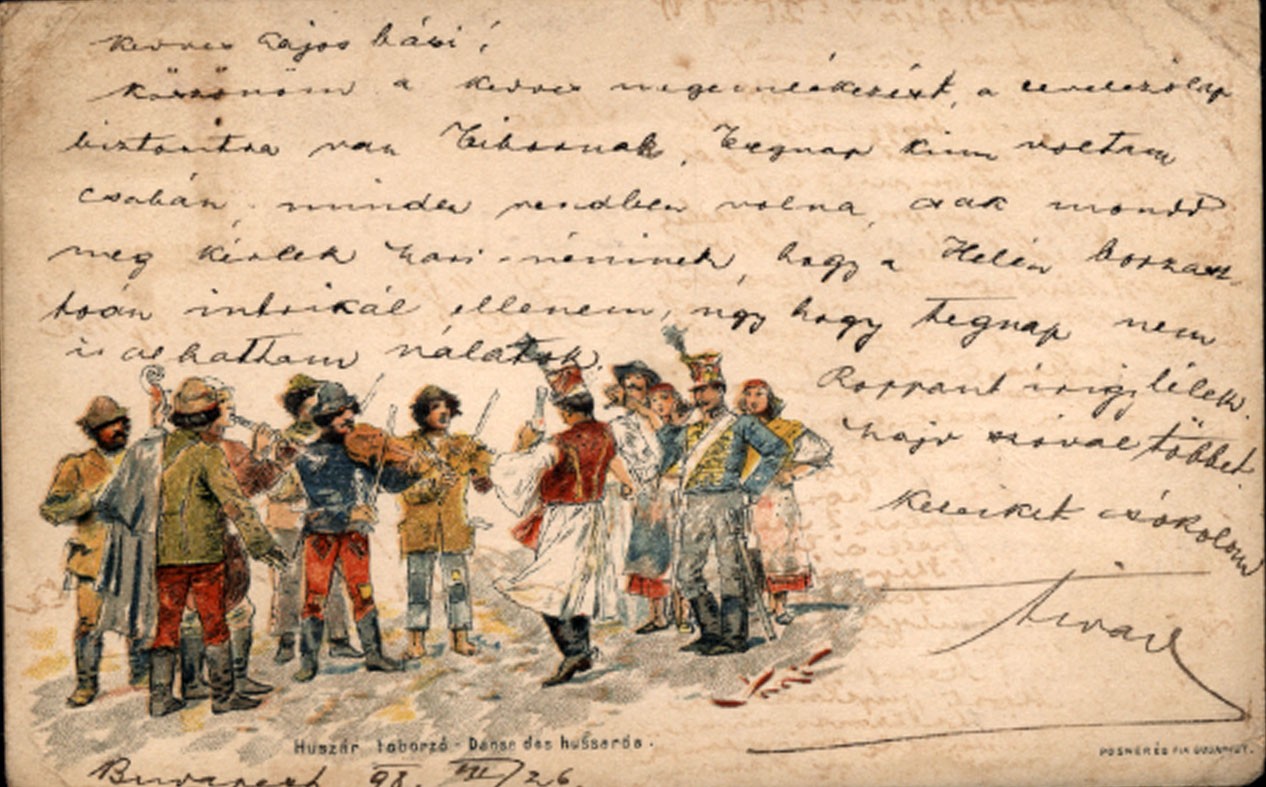 Kedves Lajos bácsi!
Köszönöm a kedves megemlékezést, a levelezőlap
biztosítva van Tibornak. Tegnap kinn voltam
Csabán, minden rendben volna, csak mondd
meg kérlek Mari néninek, hogy a Helén borzasz-
tóan intrikál ellenem, úgy hogy tegnap nem
is alhattam nálatok.
Roppant irigy lélek.
Majd szóval többet.
Kezeiket csókolom
Huszár toborzó - Danse des hussards.
POSNER ÉS FIA BUDAPEST.
Budapest 98. VII/26.